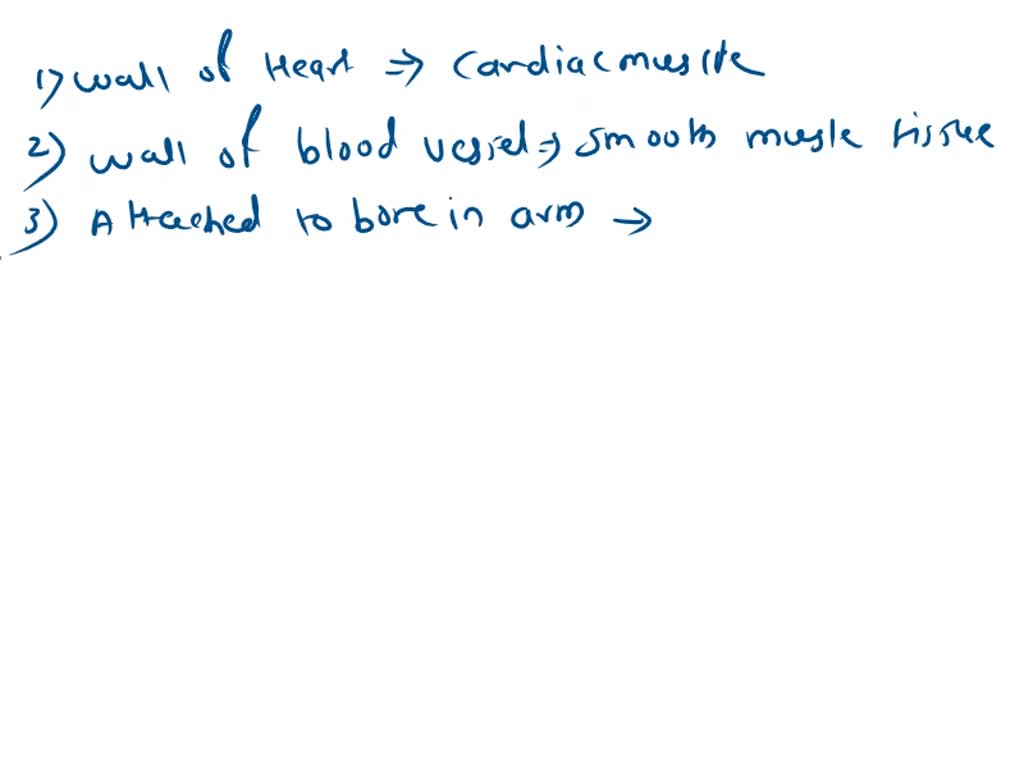 1) wall of Heart ⇒ cardiac muscle
2) wall of blood vessel ⇒ smooth muscle tissue
3) Attached to bone in arm →